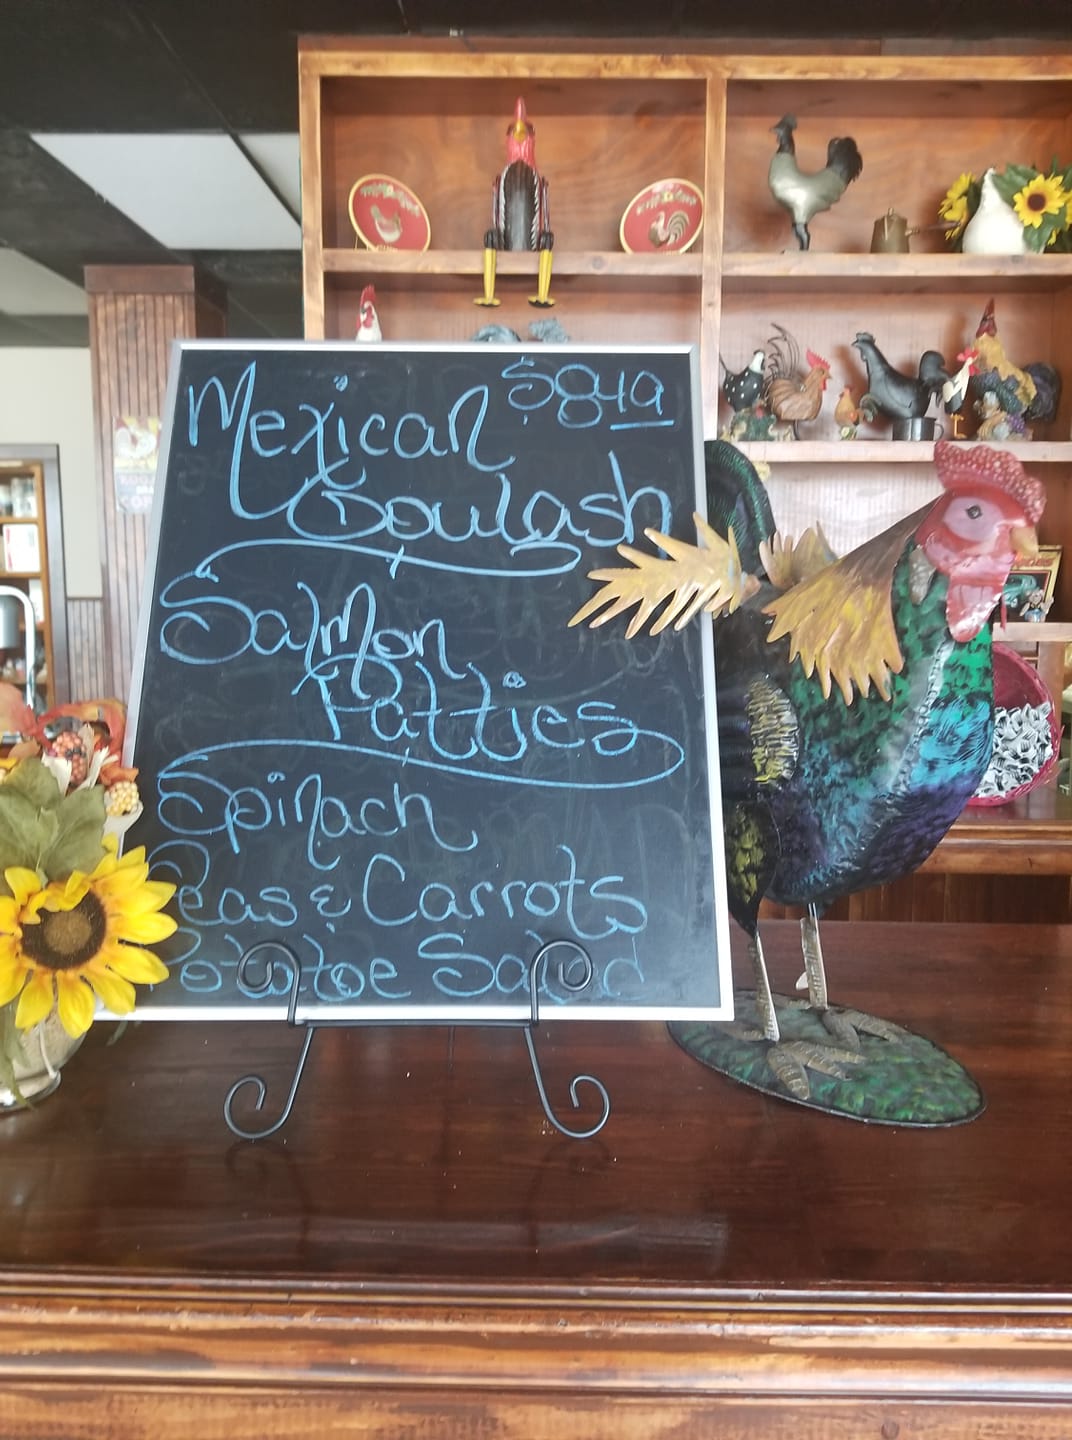 Mexican $8.49
Goulash
Salmon
Patties
Spinach
Peas & Carrots
Potatoe Salad